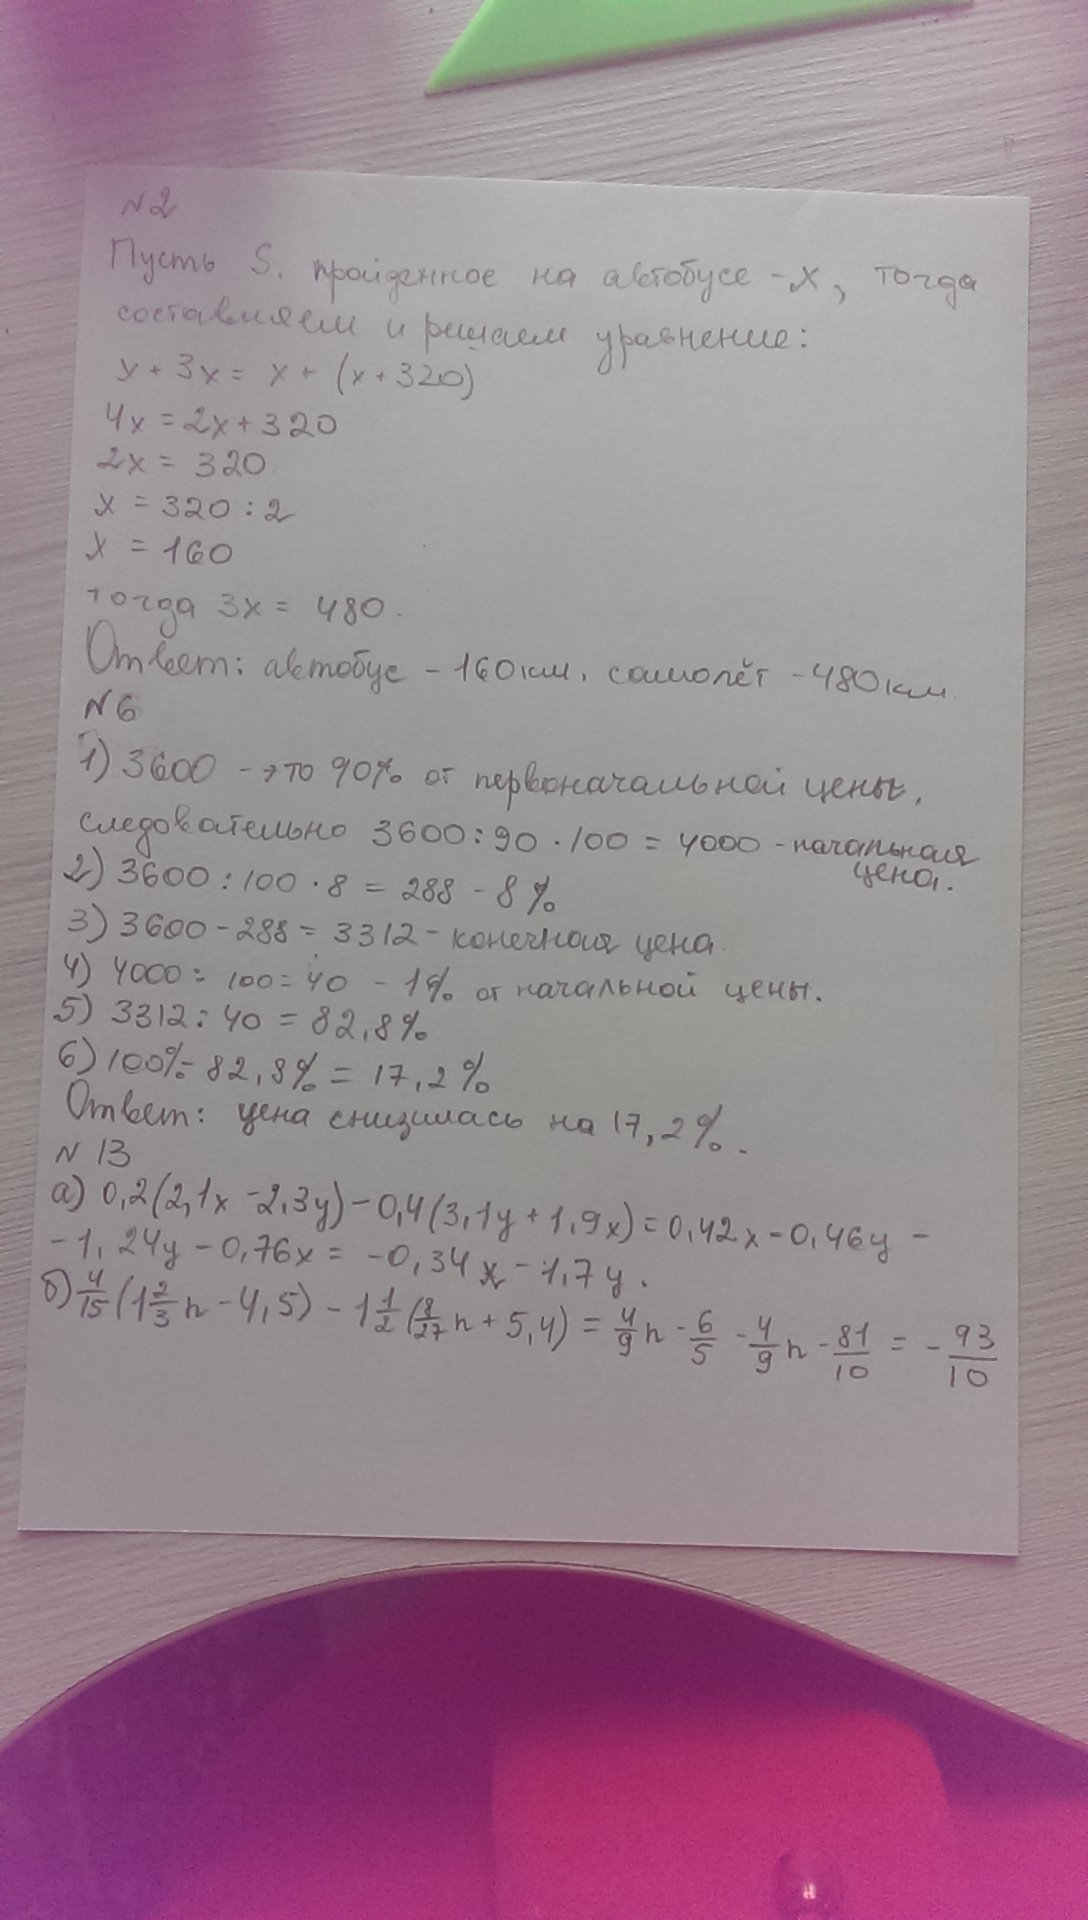 N2
Пусть S, пройденное на автобусе - x, тогда
составляем и решаем уравнение:
x + 3x = x + (x + 320)
4x = 2x + 320
2x = 320
x = 320 : 2
x = 160
тогда 3x = 480.
Ответ: автобус - 160 км, самолёт - 480 км
N6
1) 3600 - это 90% от первоначальной цены,
следовательно 3600 : 90 · 100 = 4000 - начальная
цена.
2) 3600 : 100 · 8 = 288 - 8%
3) 3600 - 288 = 3312 - конечная цена
4) 4000 : 100 = 40 - 1% от начальной цены.
5) 3312 : 40 = 82,8%
6) 100% - 82,8% = 17,2%
Ответ: цена снизилась на 17,2%.
N 13
а) 0,2(2,1x - 2,3y) - 0,4(3,1y + 1,9x) = 0,42x - 0,46y -
- 1,24y - 0,76x = -0,34x - 1,7y.
б) 4/15 (1 2/3 n - 4,5) - 1 1/2 (8/27 n + 5,4) = 4/9 n - 6/5 - 4/9 n - 81/10 = - 93/10